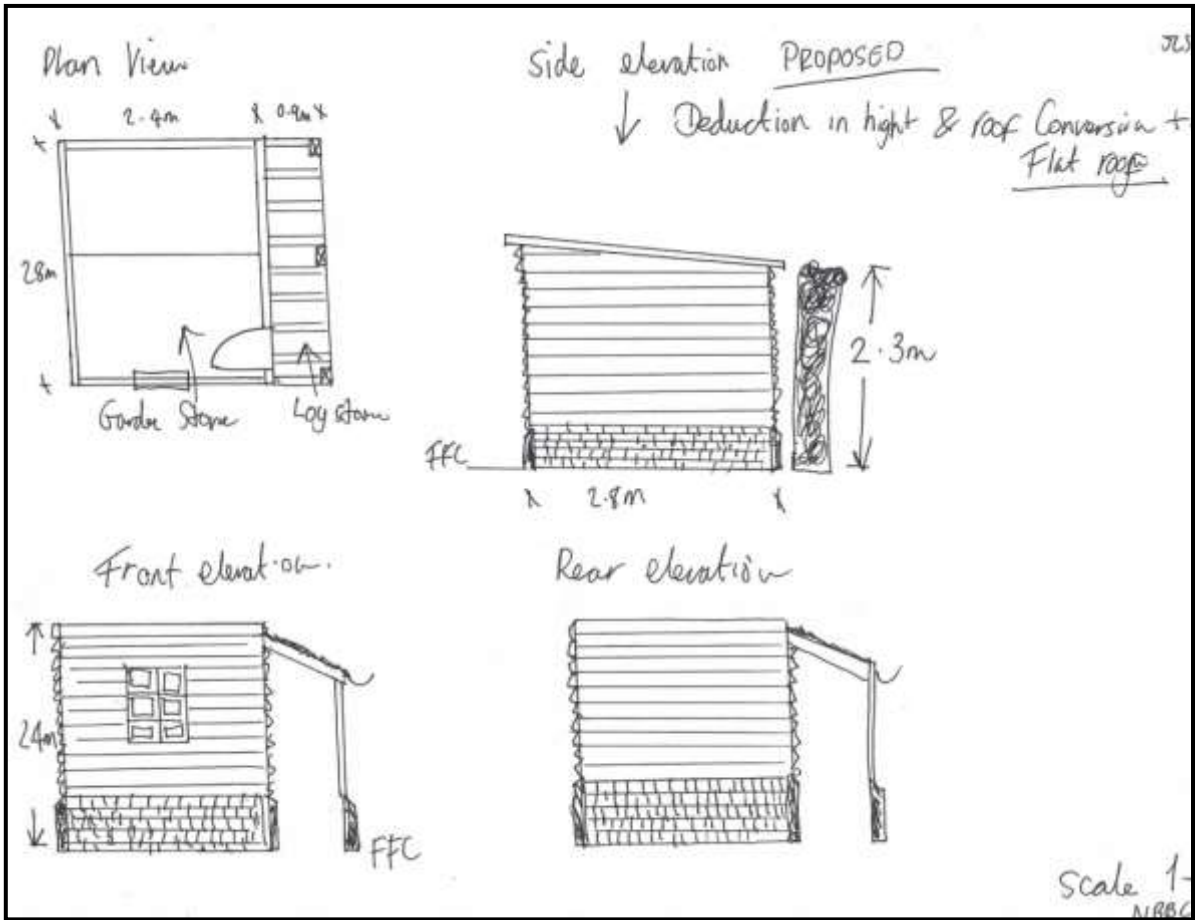 Plan View
2.4m 0.9m
28m
Garde Store
Log store
Side elevation PROPOSED
↓ Deduction in hight & roof Conversion +
Flat roof
2.3m
FFC
2.8m
Front elevation.
24m
FFC
Rear elevation
Scale 1-
NRBC